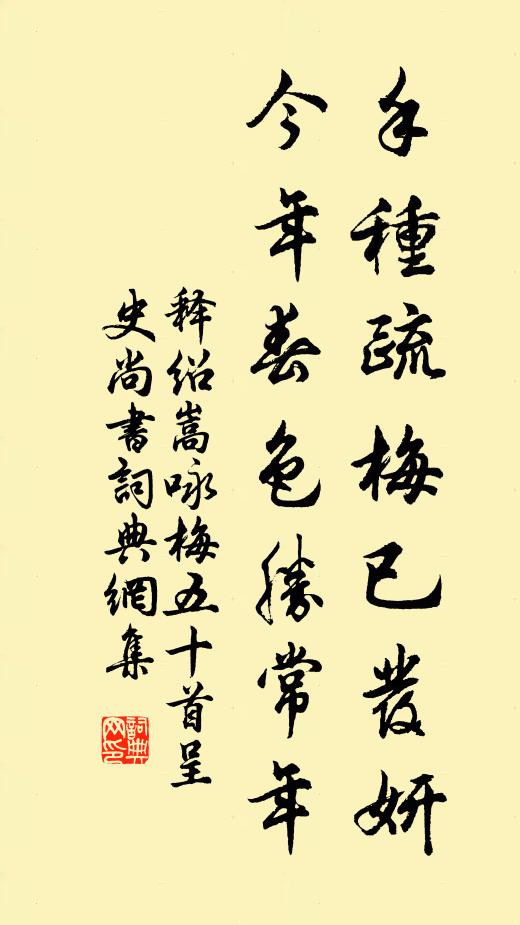 手種疏梅已發妍
今年春色勝常年
释绍嵩咏梅五十首呈
史尚書詞典網集
詞典
网印